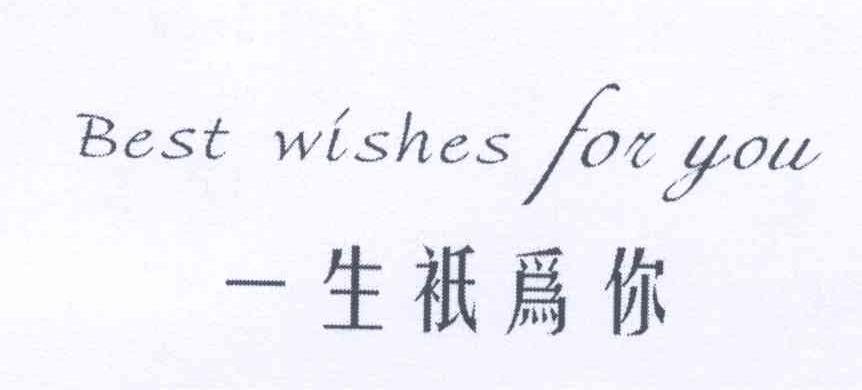 Best wishes for you
一生衹爲你